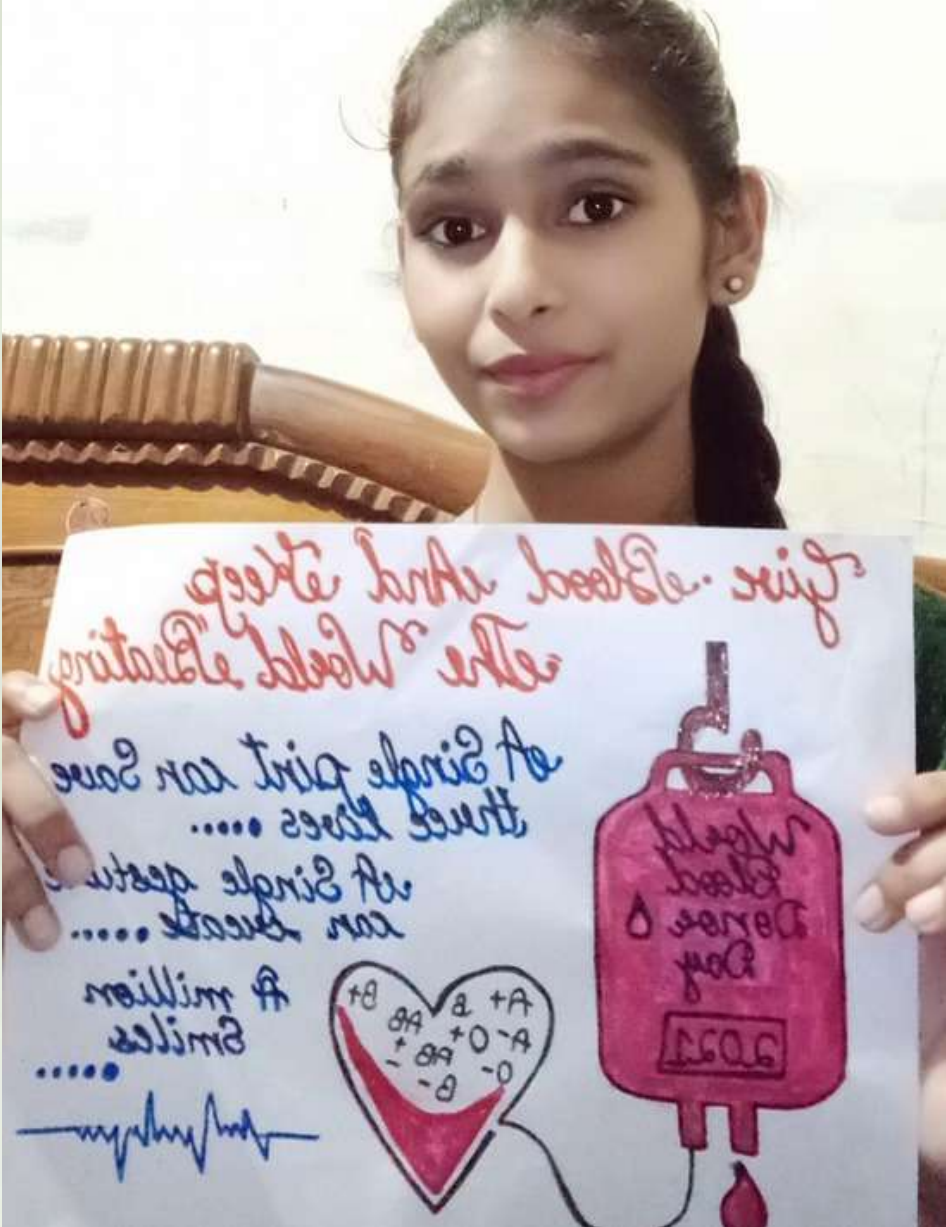 Give Blood And Keep
The World Beating
A Single pint can Save
three Lives ....
A Single gesture
can Create .....
A million
Smiles
.....
World
Blood
Donor
Day
2021
A+ B B+
A- O+ AB
AB+
O- B- -